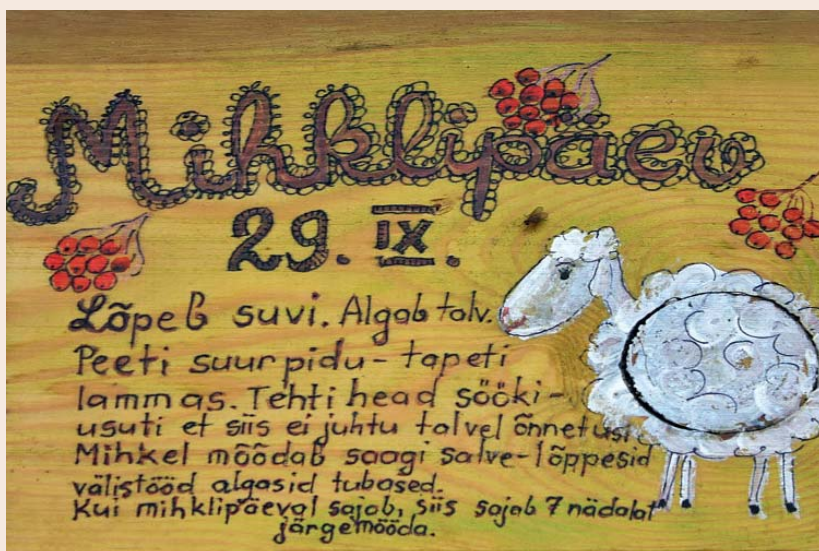 Mihklipäev
29. IX.
Lõpeb suvi. Algab talv.
Peeti suur pidu - tapeti
lammas. Tehti head sööki -
usuti et siis ei juhtu talvel õnnetusi.
Mihkel mõõdab saagi salve - lõppesid
välistööd algasid tubased.
Kui mihklipäeval sajab, siis sajab 7 nädalat
järgemööda.